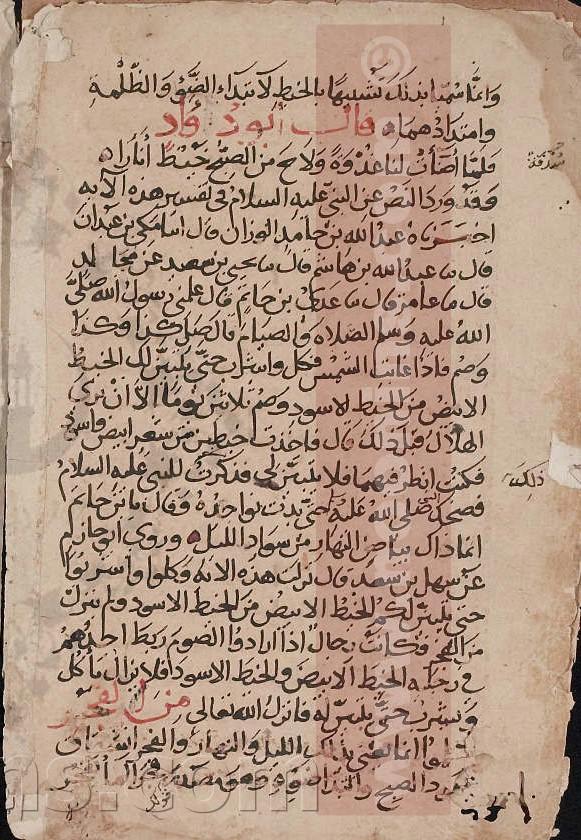 وانما سميا بذلك تشبيها بالخيط لابتداء الضوء والظلمة
وامتدادهما قال ابو دؤاد
فلما اضات لنا غدوة ولاح من الصبح خيط انارا
وقد ورد النص عن النبي عليه السلام في تفسير هذه الآيه
اخبرناه عبد الله بن حامد الوزان قال اسا مكي بن عبدان
قال سا عبد الله بن هاشم قال سا يحيى بن سعيد عن مجالد
قال سا عامر قال سا عدي بن حاتم قال علمني رسول الله صلى
الله عليه وسلم الصلاه والصيام قال صل كذا وكذا
وصم فاذا غابت الشمس فكل واشرب حتى يتبين لك الخيط
الابيض من الخيط الاسود وصم ثلاثين يوما الا ان ترى
الهلال قبل ذلك قال فاخذت خيطين من شعر ابيض واسود
فكنت انظر فيهما فلا يتبين لي فذكرت للنبي عليه السلام
ذلك
فضحك النبي صلى الله عليه حتى بدت نواجذه وقال يا بن حاتم
انما ذاك بياض النهار من سواد الليل وروى ابو حازم
عن سهل بن سعد قال نزلت هذه الايه وكلوا واشربوا
حتى يتبين لكم الخيط الابيض من الخيط الاسود ولم ينزل
من الفجر فكان رجال اذا ارادوا الصوم ربط احدهم
في رجليه الخيط الابيض والخيط الاسود فلا يزال ياكل
ويشرب حتى يتبين له فانزل الله تعالى من الفجر
انما يعني بذلك الليل والنهار والفجر انشقاق
عمود الصبح وابتداء ضوءه وهو مصدر فجر الماء